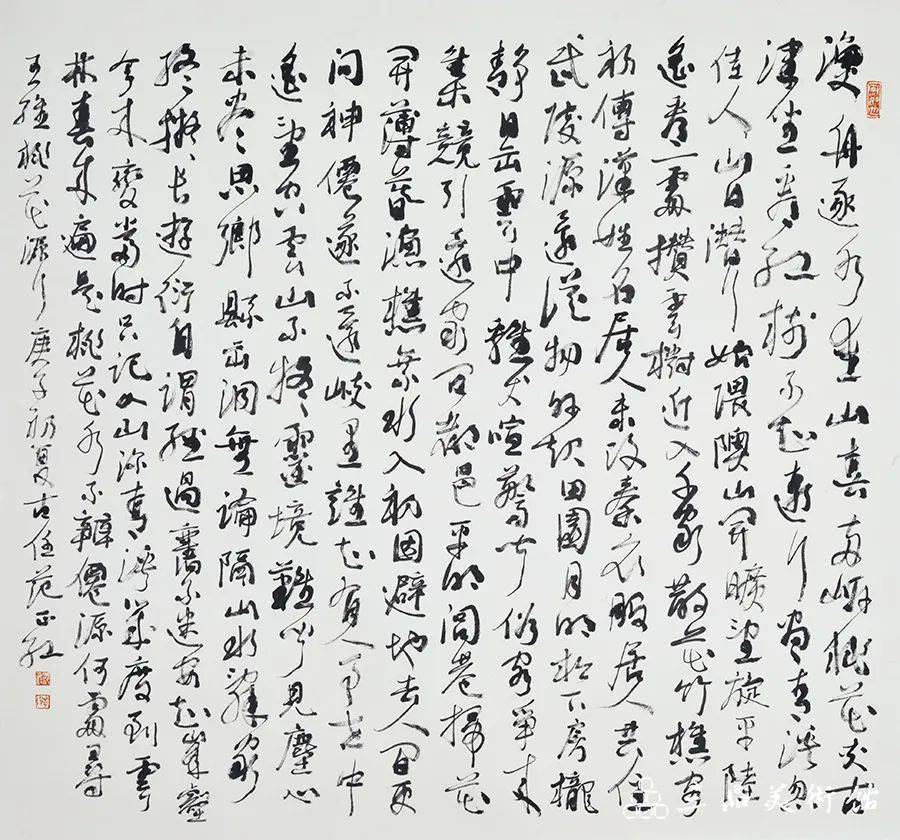 漁舟逐水愛山春兩岸桃花夾古
津坐看紅樹不知遠行盡青溪忽
佳人山口潛行始隈隩山開曠望旋平陸
遙看一處攢雲樹近入千家散花竹樵客
初傳漢姓名居人未改秦衣服居人共住
武陵源還從物外起田園月明松下房櫳
靜日出雲中雞犬喧驚聞俗客爭來
集競引還家問都邑平明閭巷掃花
開薄暮漁樵乘水入初因避地去人間更
問神僊遂不還峽裏誰知有人事世中
遙望空雲山不疑靈境難聞見塵心
未盡思鄉縣出洞無論隔山水辭家
終擬長遊衍自謂經過舊不迷安知峯壑
今來變當時只記入山深青溪幾度到雲
林春來遍是桃花水不辨僊源何處尋
王維桃花源行庚子初夏古任范正紅
美術館